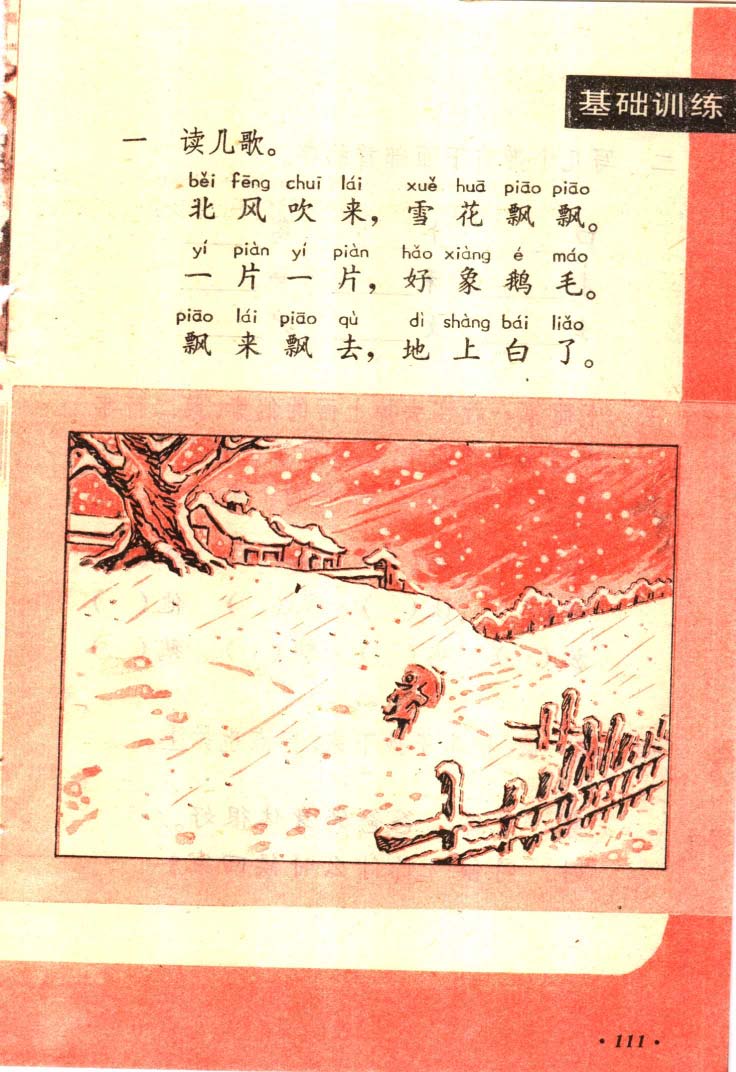 基础训练
一 读儿歌。
běi fēng chuī lái xuě huā piāo piāo
北风吹来，雪花飘飘。
yí piàn yí piàn hǎo xiàng é máo
一片一片，好象鹅毛。
piāo lái piāo qù dì shàng bái liǎo
飘来飘去，地上白了。
·111·